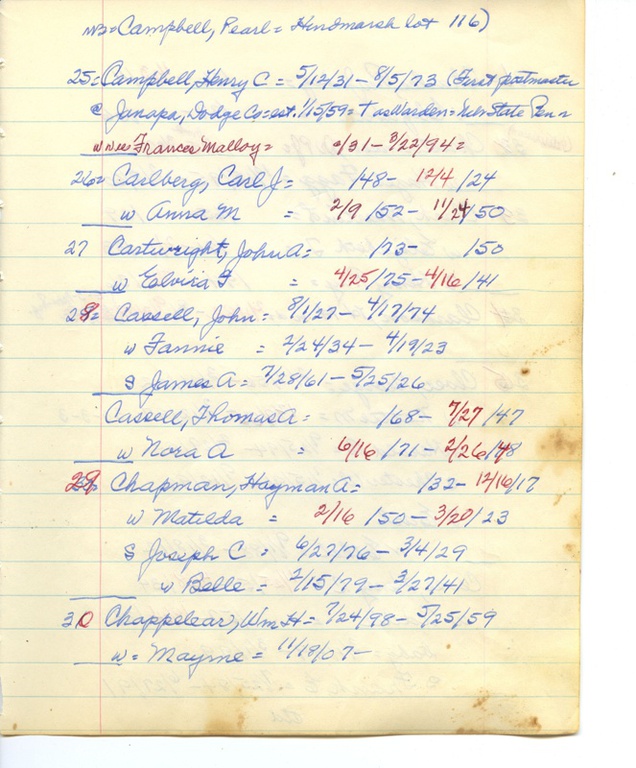 NB= Campbell, Pearl = Hindmarsh lot 116)
25= Campbell, Henry C = 5/12/31 - 8/5/73 (First postmaster
@ Janapa, Dodge Co= est. 1/15/59= † as Warden= Nebr State Penn
w nee Frances Malloy= /31 - 3/22/94=
26= Carlberg, Carl J= /48- 12/4 /24
w Anna M = 2/9 /52 - 11/24/50
27 Cartwright, John A= /73- /50
w Elvira F = 4/25/75 - 4/16/41
28= Cassell, John= 8/1/27 - 4/17/74
w Fannie = 2/24/34 - 4/19/23
S James A= 7/28/61 - 5/25/26
Cassell, Thomas A= /68- 7/27 /47
w Nora A = 6/16 /71 - 2/26/48
29 Chapman, Hayman A= /32- 12/16/17
w Matilda = 2/16 /50 - 3/20/23
S Joseph C = 6/27/76 - 3/4/29
w Belle = 2/15/79 - 3/27/41
30 Chappelear, Wm H= 7/24/98 - 5/25/59
w= Mayme = 11/18/07 -